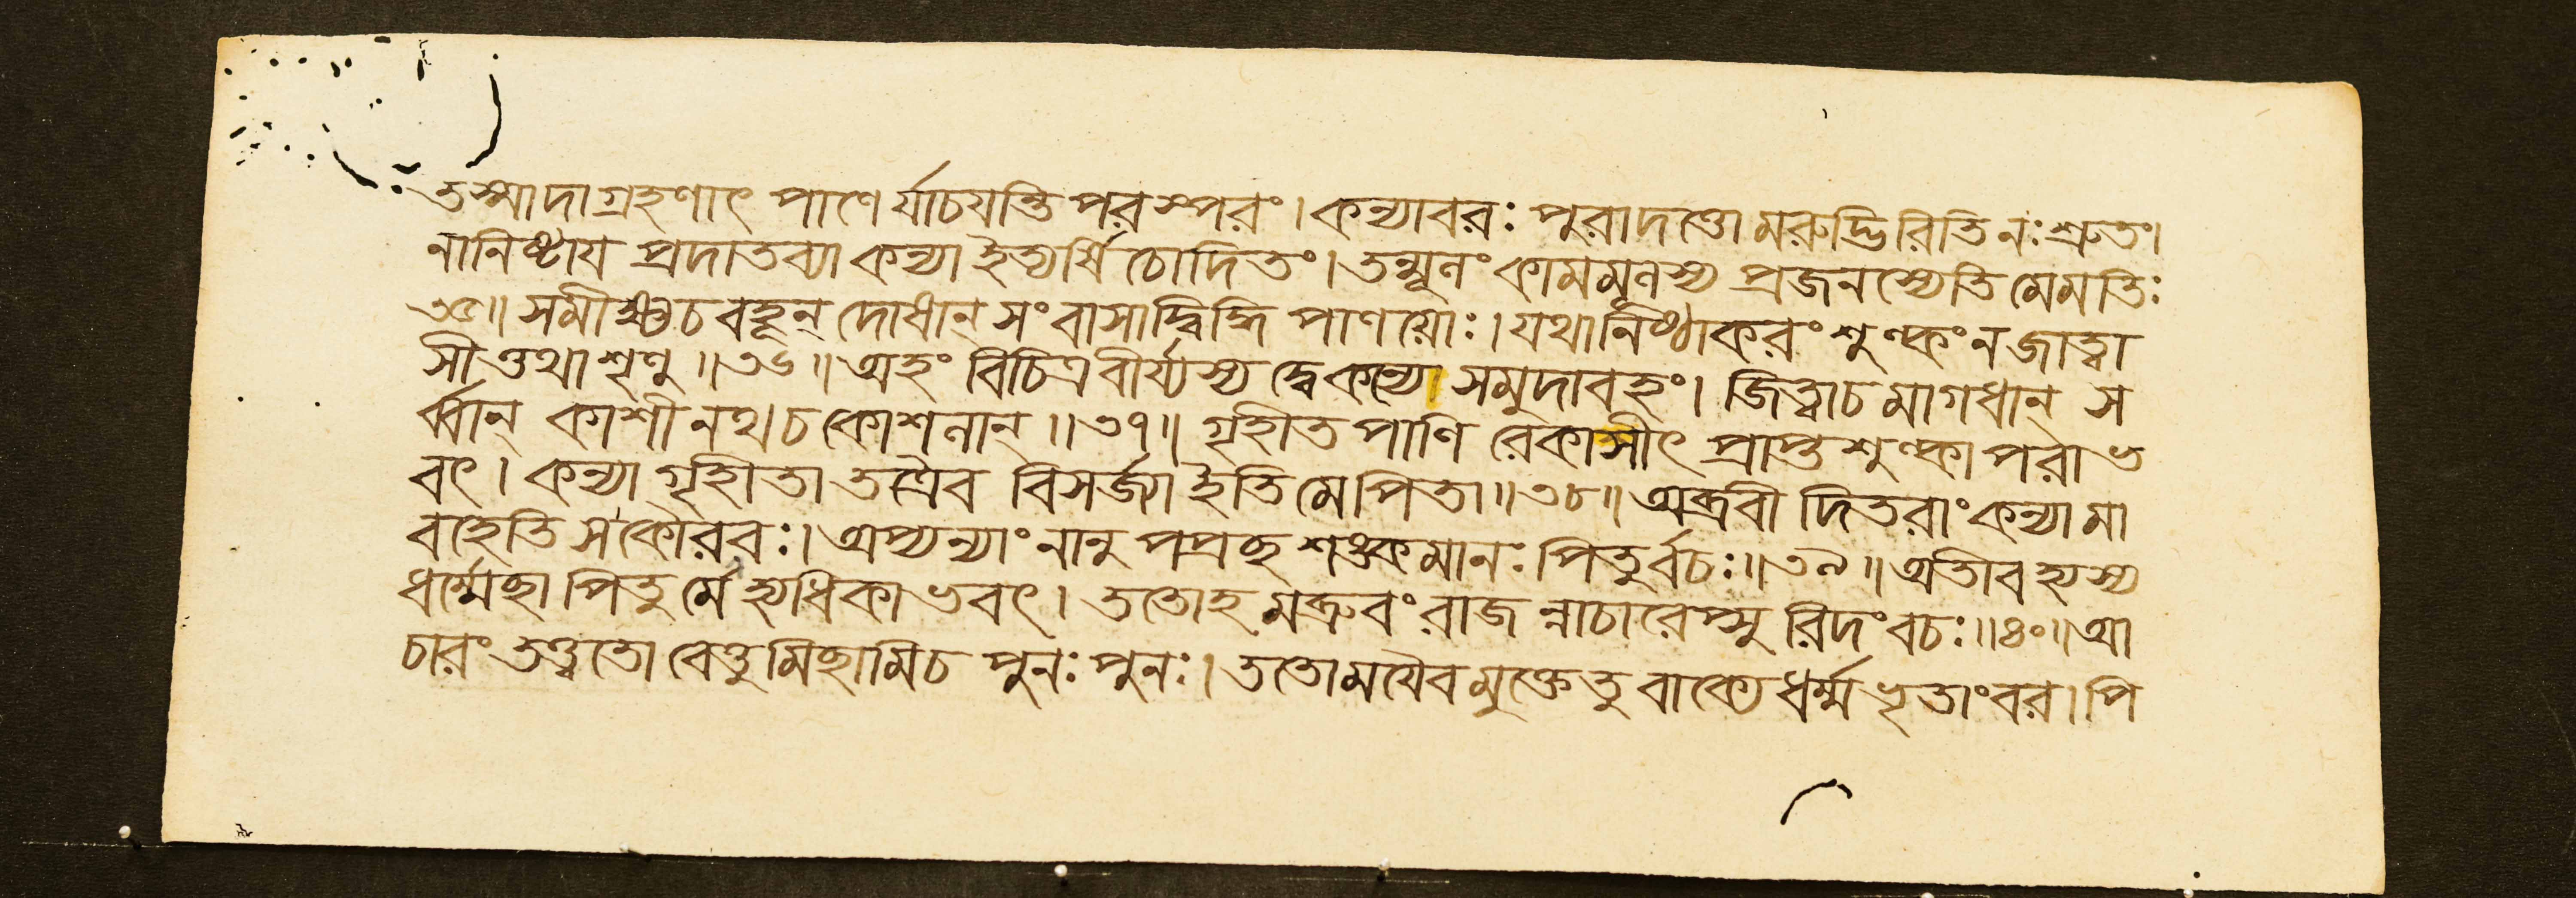 তস্মাদাগ্রহণাৎ পাণের্যাচযন্তি পরস্পরং। কন্যাবরঃ পুরাদত্তো মরুদ্ভিরিতি নঃ শ্রুতং।
নানিষ্টায প্রদাতব্যা কন্যা ইত্যর্ষি চোদিতং। তন্মূলং কামমূলস্য প্রজনস্যেতি মেমতিঃ
৩৫॥ সমীক্ষ্যচ বহূন্ দোষান্ সংবাসাদ্বিদ্ধি পাণয়োঃ। যথানিষ্ঠাকরং শুল্কং ন জাত্বা
সীত্তথা শৃণু ॥৩৬॥ অহং বিচিত্রবীর্য্যস্য দ্বেকন্যে সমুদাবহং। জিত্বাচ মাগধান্ স
র্ব্বান্ কাশীনথ চ কোশলান্ ॥৩৭॥ গৃহীত পাণি রেকাসীৎ প্রাপ্তশুল্কা পরাভ
বৎ। কন্যা গৃহীতা তত্রৈব বিসর্জ্যা ইতি মে পিতা॥৩৮॥ অব্রবী দিতরাং কন্যা মা
বহেতি স কৌরবঃ। অপ্যন্যাং নানু পপ্রচ্ছ শঙ্কমানঃ পিতুর্বচঃ॥৩৯॥ অতীব হ্যস্য
ধর্ম্মেচ্ছা পিতু র্মে হ্যধিকা ভবৎ। ততোহ মব্রুবং রাজ ন্নাচারেপ্সু রিদং বচঃ॥৪০॥ আ
চারং তত্ত্বতো বেত্তুমিচ্ছামিচ পুনঃ পুনঃ। ততোময়ৈবমুক্তেতু বাক্যে ধর্ম্মভৃতাংবর। পি